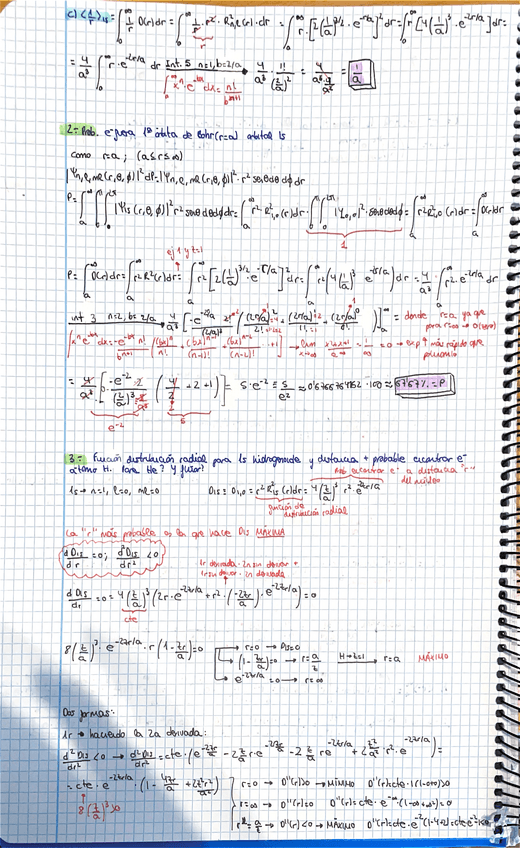 c) ⟨1/r⟩₁ₛ = ∫₀^∞ 1/r D(r) dr = ∫₀^∞ 1/r · r² · R²n,l(r) · dr = ∫₀^∞ r · [2(1/a)^3/2 · e^-r/a]² dr = ∫₀^∞ r [4(1/a)³ · e^-2r/a] dr =
r
= 4/a³ ∫₀^∞ r · e^-2r/a dr Int. 5 n=1, b=2/a 4/a³ · 1!/(2/a)² = = 1/a
∫₀^∞ xⁿ e^-bx dx = n!/b^n+1
2- Prob. e⁻ para 1ª órbita de Bohr (r=a) orbital 1s
como r=a ; (a≤r≤∞)
|Ψn,l,ml (r,θ,ϕ)|² dP = |Ψn,l,ml (r,θ,ϕ)|² · r² senθ dθ dϕ dr
P = ∫ₐ^∞ ∫₀^π ∫₀^2π |Ψ1s (r,θ,ϕ)|² r² senθ dθ dϕ dr = ∫ₐ^∞ r² R²1,0 (r) dr · ∫₀^π ∫₀^2π |Y0,0|² · senθ dθ dϕ = ∫ₐ^∞ r² R²1,0 (r) dr = ∫ₐ^∞ D(r) dr
1
ej 1 y t=1
P = ∫ₐ^∞ D(r) dr = ∫ₐ^∞ r² R²(r) dr = ∫ₐ^∞ r² [2(1/a)^3/2 e^-r/a]² dr = ∫ₐ^∞ r² (4(1/a)³ e^-2r/a) dr = 4/a³ ∫ₐ^∞ r² · e^-2r/a dr
int 3 n=2, b=2/a 4/a³ = donde r=a ya que
para r=∞ → 0
= 0 → exp⁺ más rápido que
polinomio
= 4/a³ [0 - -e^-2 · 2/(2/a)³ (4/2 + 2 + 1)] = 5 · e^-2 = 5/e² ≈ 0'6766764162 · 100 ≈ 67'67% = P
e^-2 5
3- Función distribución radial para 1s hidrogenoide y distancia + probable encontrar e⁻
átomo H. Para He⁺ y flúor?
Prob encontrar e⁻ a distancia "r"
del núcleo
1s → n=1, l=0, ml=0 D1s = D1,0 = r² R²1s (r) dr = 4(z/a)³ r² · e^-2zr/a
función de
distribución radial
La "r" más probable es la que hace D1s MÁXIMA
dD1s/dr = 0 ; d²D1s/dr² < 0
1r derivada · 2n sin derivar +
1r sin derivar · 2n derivada
dD1s/dr = 0 = 4(z/a)³ (2r · e^-2zr/a + r² · (-2z/a) · e^-2zr/a) = 0
cte
8(z/a)³ · e^-2zr/a · r (1 - zr/a) = 0 r=0 → D1s=0
(1 - zr/a) = 0 → r = a/z H→z=1 r=a MÁXIMO
e^-2zr/a = 0 → r=∞
Dos formas:
1r → haciendo la 2a derivada:
d²D1s/dr² < 0 → d²D1s/dr² = cte · (e^-2zr/a - 2z/a r · e^-2zr/a - 2z/a r e^-2zr/a + 2z²/a² · r² · e^-2zr/a) =
= cte · e^-2zr/a · (1 - 4zr/a + 2z²r²/a²) r=0 → D''(r)>0 → MÍNIMO D''(r)=cte·1(1-0+0)>0
8(z/a)³>0 r=∞ → D''(r)=0 D''(r)=cte·e^-∞·(1-∞+∞²)=0
r=a/z → D''(r)<0 → MÁXIMO D''(r)=cte·e^-2(1-4+2)